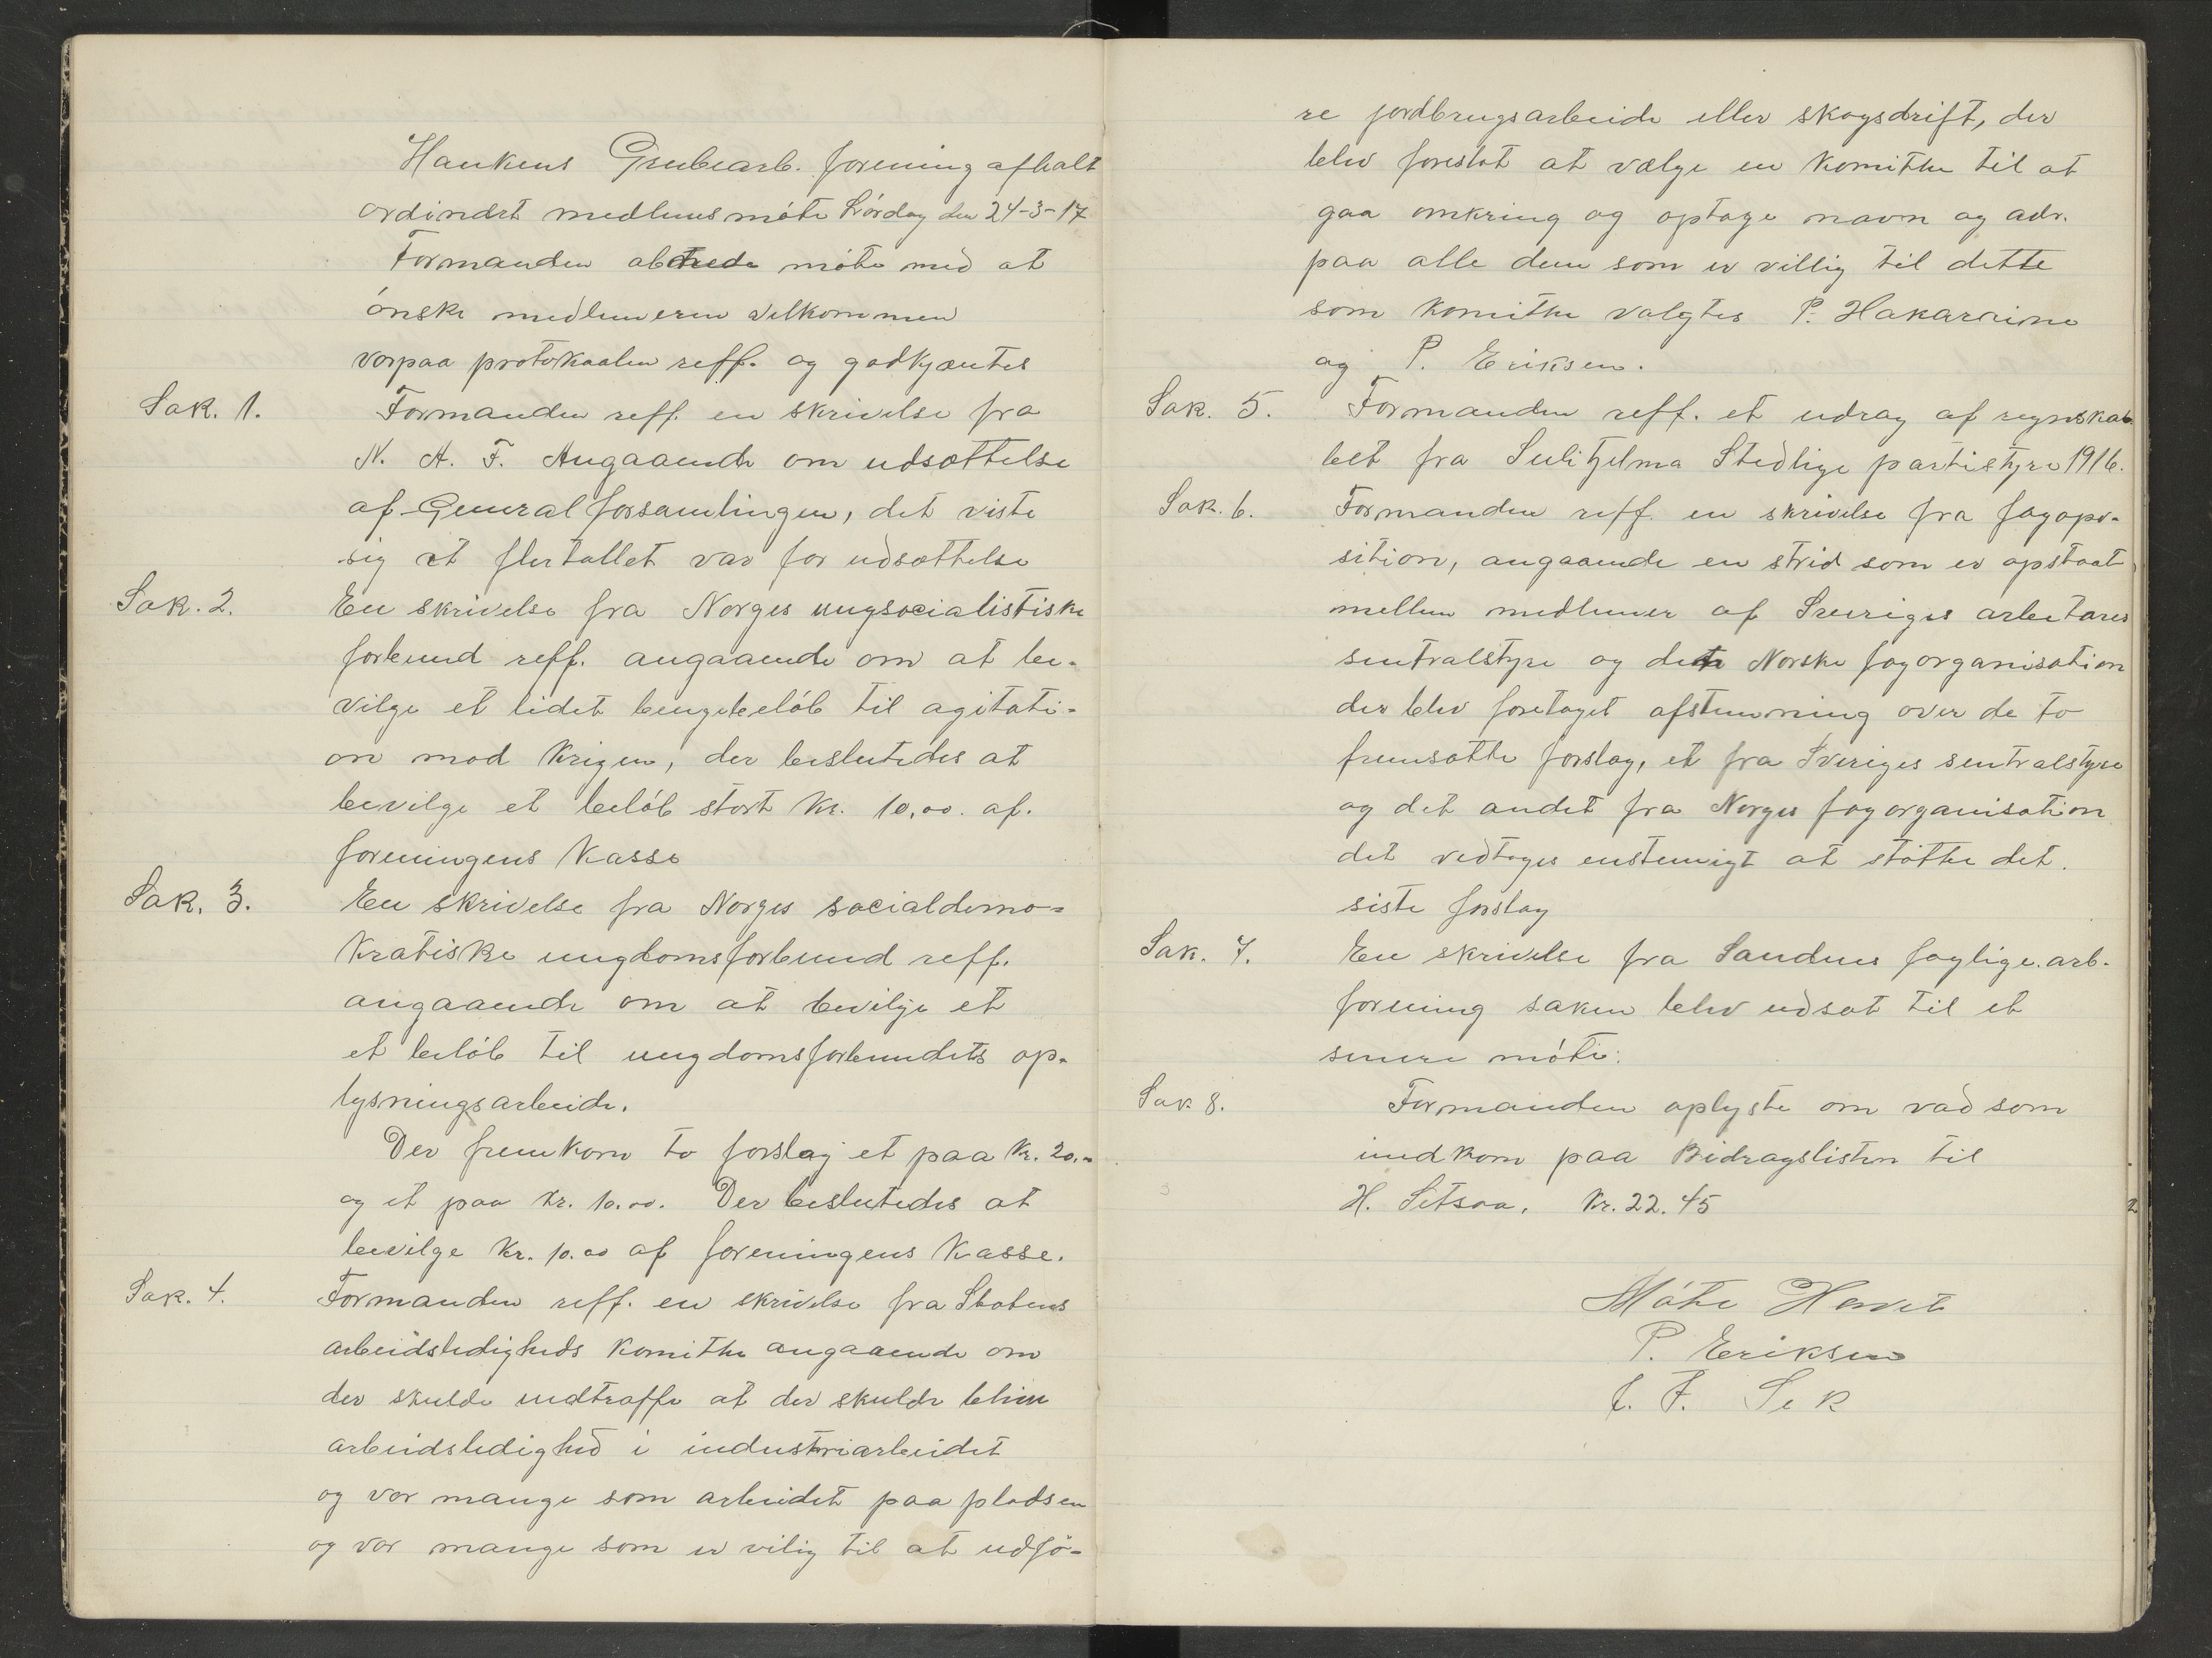 Hankens Grubearb. forening afhalt
ordinært medlems móte Lórdag den 24-3-17
Formanden abtrede móte med at
ónske medlemeren velkommen
vorpaa protokaalen reff. og godkjæntes
Sak. 1. Formanden reff. en skrivelse fra
N. A. F. Angaaende om udsættelse
af Generalforsamlingen, det viste
sig at flertallet var for udsættelse
Sak. 2. En skrivelse fra Norges ungsocialistiske
forbund reff. angaaende om at be-
vilge et lidet bengebelób til agitati-
on mod Krigen, der beslutedes at
bevilge et belób stort Kr. 10,00. af.
foreningens Kasse
Sak. 3. En skrivelse fra Norges socialdemo-
kratiske ungdomsforbund reff.
angaaende om at bevilje et
et belób til ungdomsforbundets op-
lysningsarbeide.
Der fremkom to forslag et paa Kr. 20.-
og et paa Kr. 10.00. Der beslutedes at
bevilge Kr. 10.00 af foreningens Kasse.
Sak. 4. Formanden reff. en skrivelse fra Statens
arbeidsledigheds komithe angaaende om
der skulde indtraffe at der skulde blive
arbeidsledighed i industriarbeidet
og vor mange som arbeidet paa pladsen
og vor mange som er vilig til at udfö-
re jordbrugsarbeide eller skogsdrift, der
blev foreslåt at vælge en Komithe til at
gaa omkring og optage navn og adr.
paa alle dem som er villig til dette
som Komithe valgtes P. Hakarine
og P. Eriksen.
Sak. 5. Formanden reff. et udrag af regnskab-
bet fra Sulitjelma Stedlige partistyre 1916.
Sak. 6. Formanden reff. en skrivelse fra fagopo-
sition, angaaende en strid som er opstaat
mellem medlemer af Sveriges arbetares
sentralstyre og dete Norske fagorganisation
der blev foretaget afstemning over de to
fremsatte forslag, et fra Sveriges sentralstyre
og det andet fra Norges fagorganisation
det vedtoges enstemigt at stótte det.
siste forslag
Sak. 7. En skrivelse fra Sandnes faglige. arb.
forening saken blev udsat til et
senere móte.
Sak 8. Formanden oplyste om vad som
indkom paa Bidragslisten til
H. Setsaa. Kr. 22.45
Móte Hevet
P. Eriksen
f. F. Sek